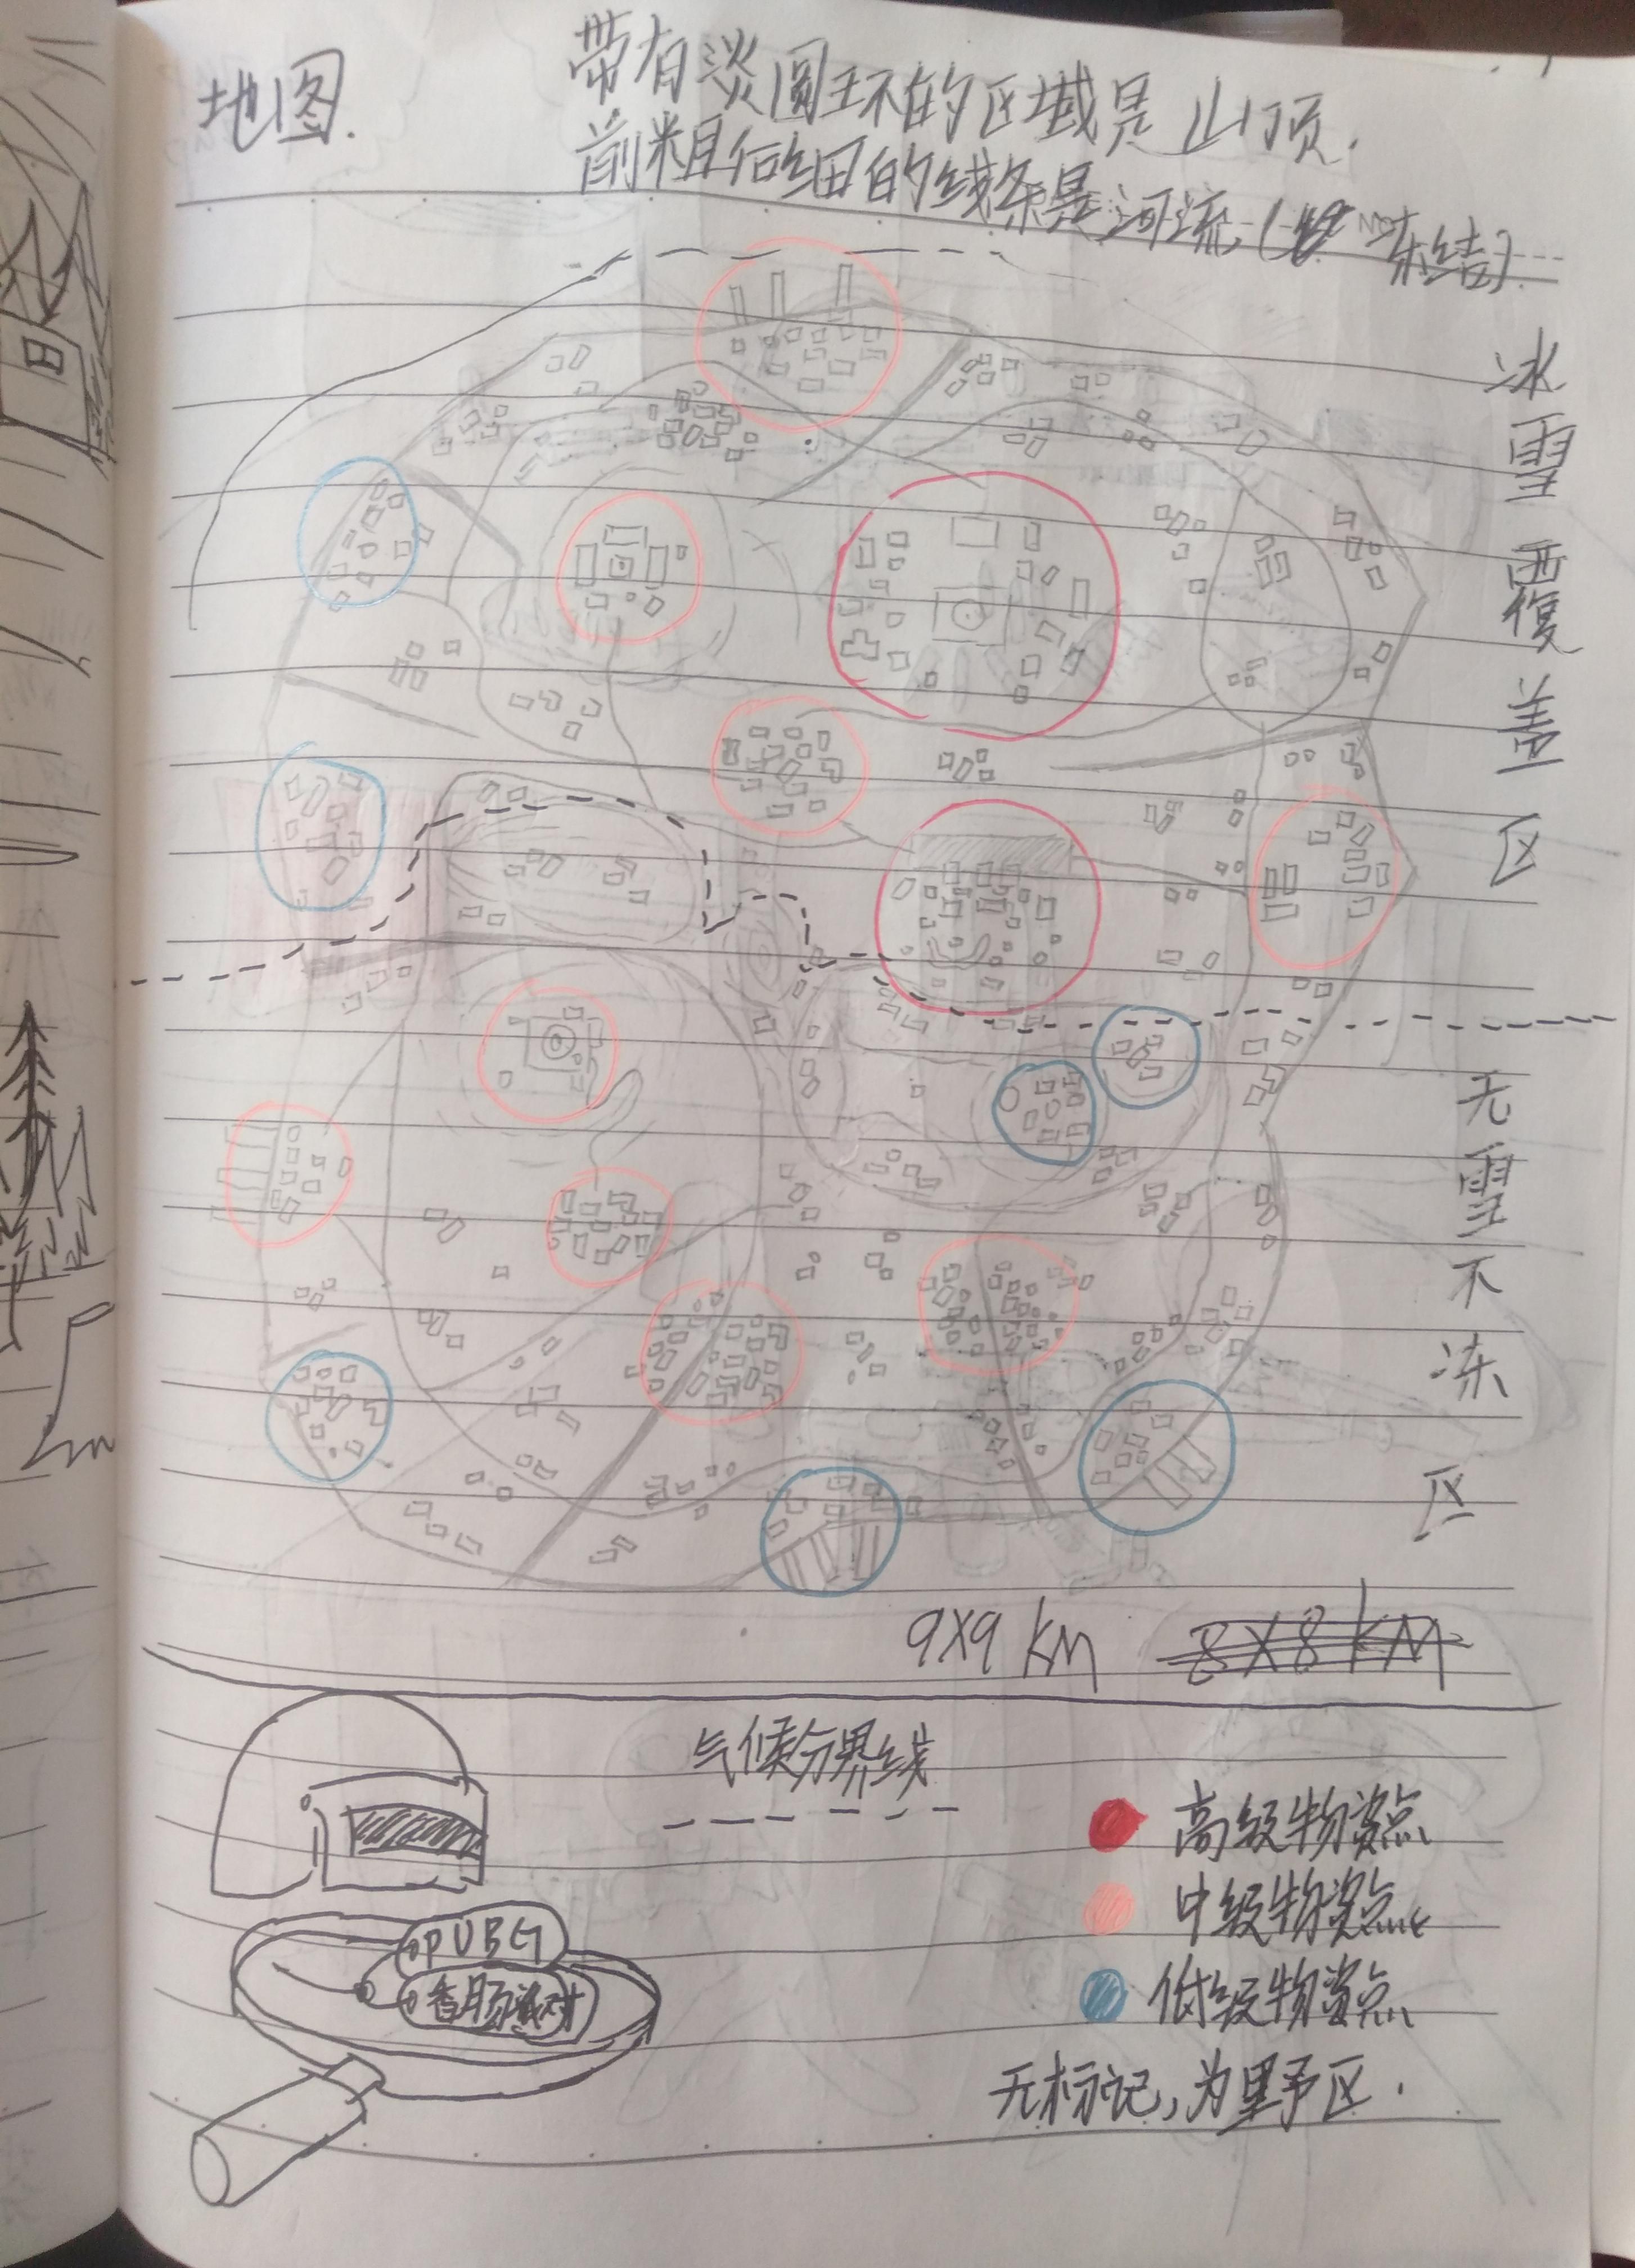 地图.
带有淡圆环的区域是山顶.
前粗后细的线条是河流(冻结).
冰雪覆盖区
无雪不冻区
9X9 KM 8X8 KM
气候分界线
高级物资点
中级物资点
低级物资点
无标记,为野区.
PUBG
香肠派对